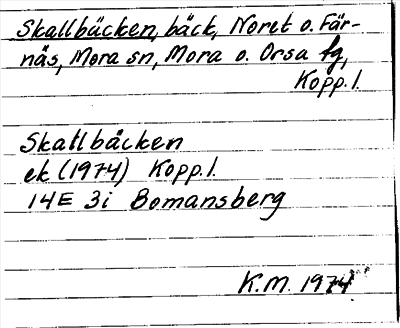 Skallbäcken, bäck, Noret o. Fär-
näs, Mora sn, Mora o. Orsa tg,
Kopp. l.
Skallbäcken
ek (1974) Kopp. l.
14E 3i Bomansberg
K.M. 1974